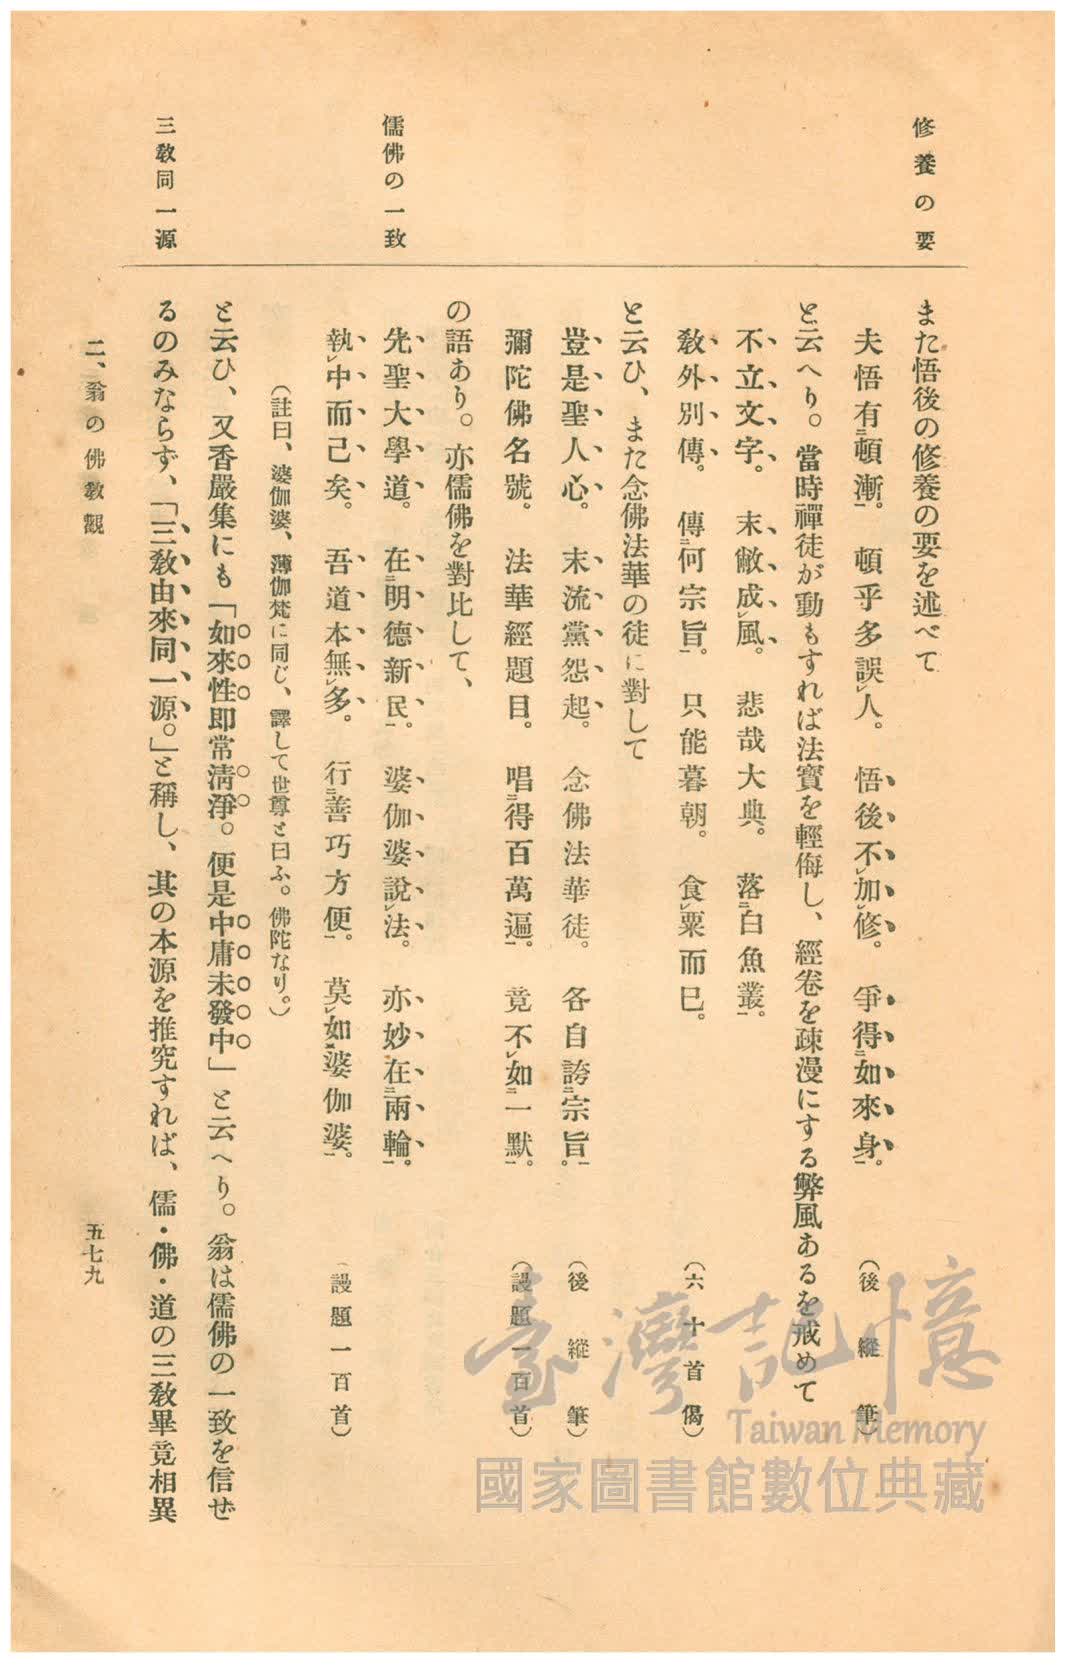 修養の要
また悟後の修養の要を述べて
夫悟有㆓頓漸㆒。　頓乎多誤㆑人。　悟後不㆑加㆑修。　爭得㆓如來身㆒。　（後縱筆）
と云へり。當時禪徒が動もすれば法寶を輕侮し、經卷を疎漫にする弊風あるを戒めて
不立文字。　末敝成㆑風。　悲哉大典。　落㆓白魚叢㆒。
教外別傳。　傳㆓何宗旨㆒。　只能暮朝。　食㆑粟而已。　（六十首偈）
と云ひ、また念佛法華の徒に對して
豈是聖人心。　末流黨怨起。　念佛法華徒。　各自誇㆓宗旨㆒。　（後縱筆）
彌陀佛名號。　法華經題目。　唱㆓得百萬遍㆒。　竟不㆑如㆓一默㆒。　（謾題一百首）
儒佛の一致
の語あり。亦儒佛を對比して、
先聖大學道。　在㆓明德新民㆒。　婆伽婆說㆑法。　亦妙在㆓兩輪㆒。
執㆑中而已矣。　吾道本無㆑多。　行㆓善巧方便㆒。　莫㆑如㆓婆伽婆㆒。　（謾題一百首）
（註曰、婆伽婆、薄伽梵に同じ、譯して世尊と曰ふ。佛陀なり。）
と云ひ、又香嚴集にも「如來性即常淸淨。便是中庸未發中」と云へり。翁は儒佛の一致を信ぜ
三教同一源
るのみならず、「三教由來同一源。」と稱し、其の本源を推究すれば、儒・佛・道の三教畢竟相異
二、翁の佛教觀
五七九
臺灣記憶
Taiwan Memory
國家圖書館數位典藏